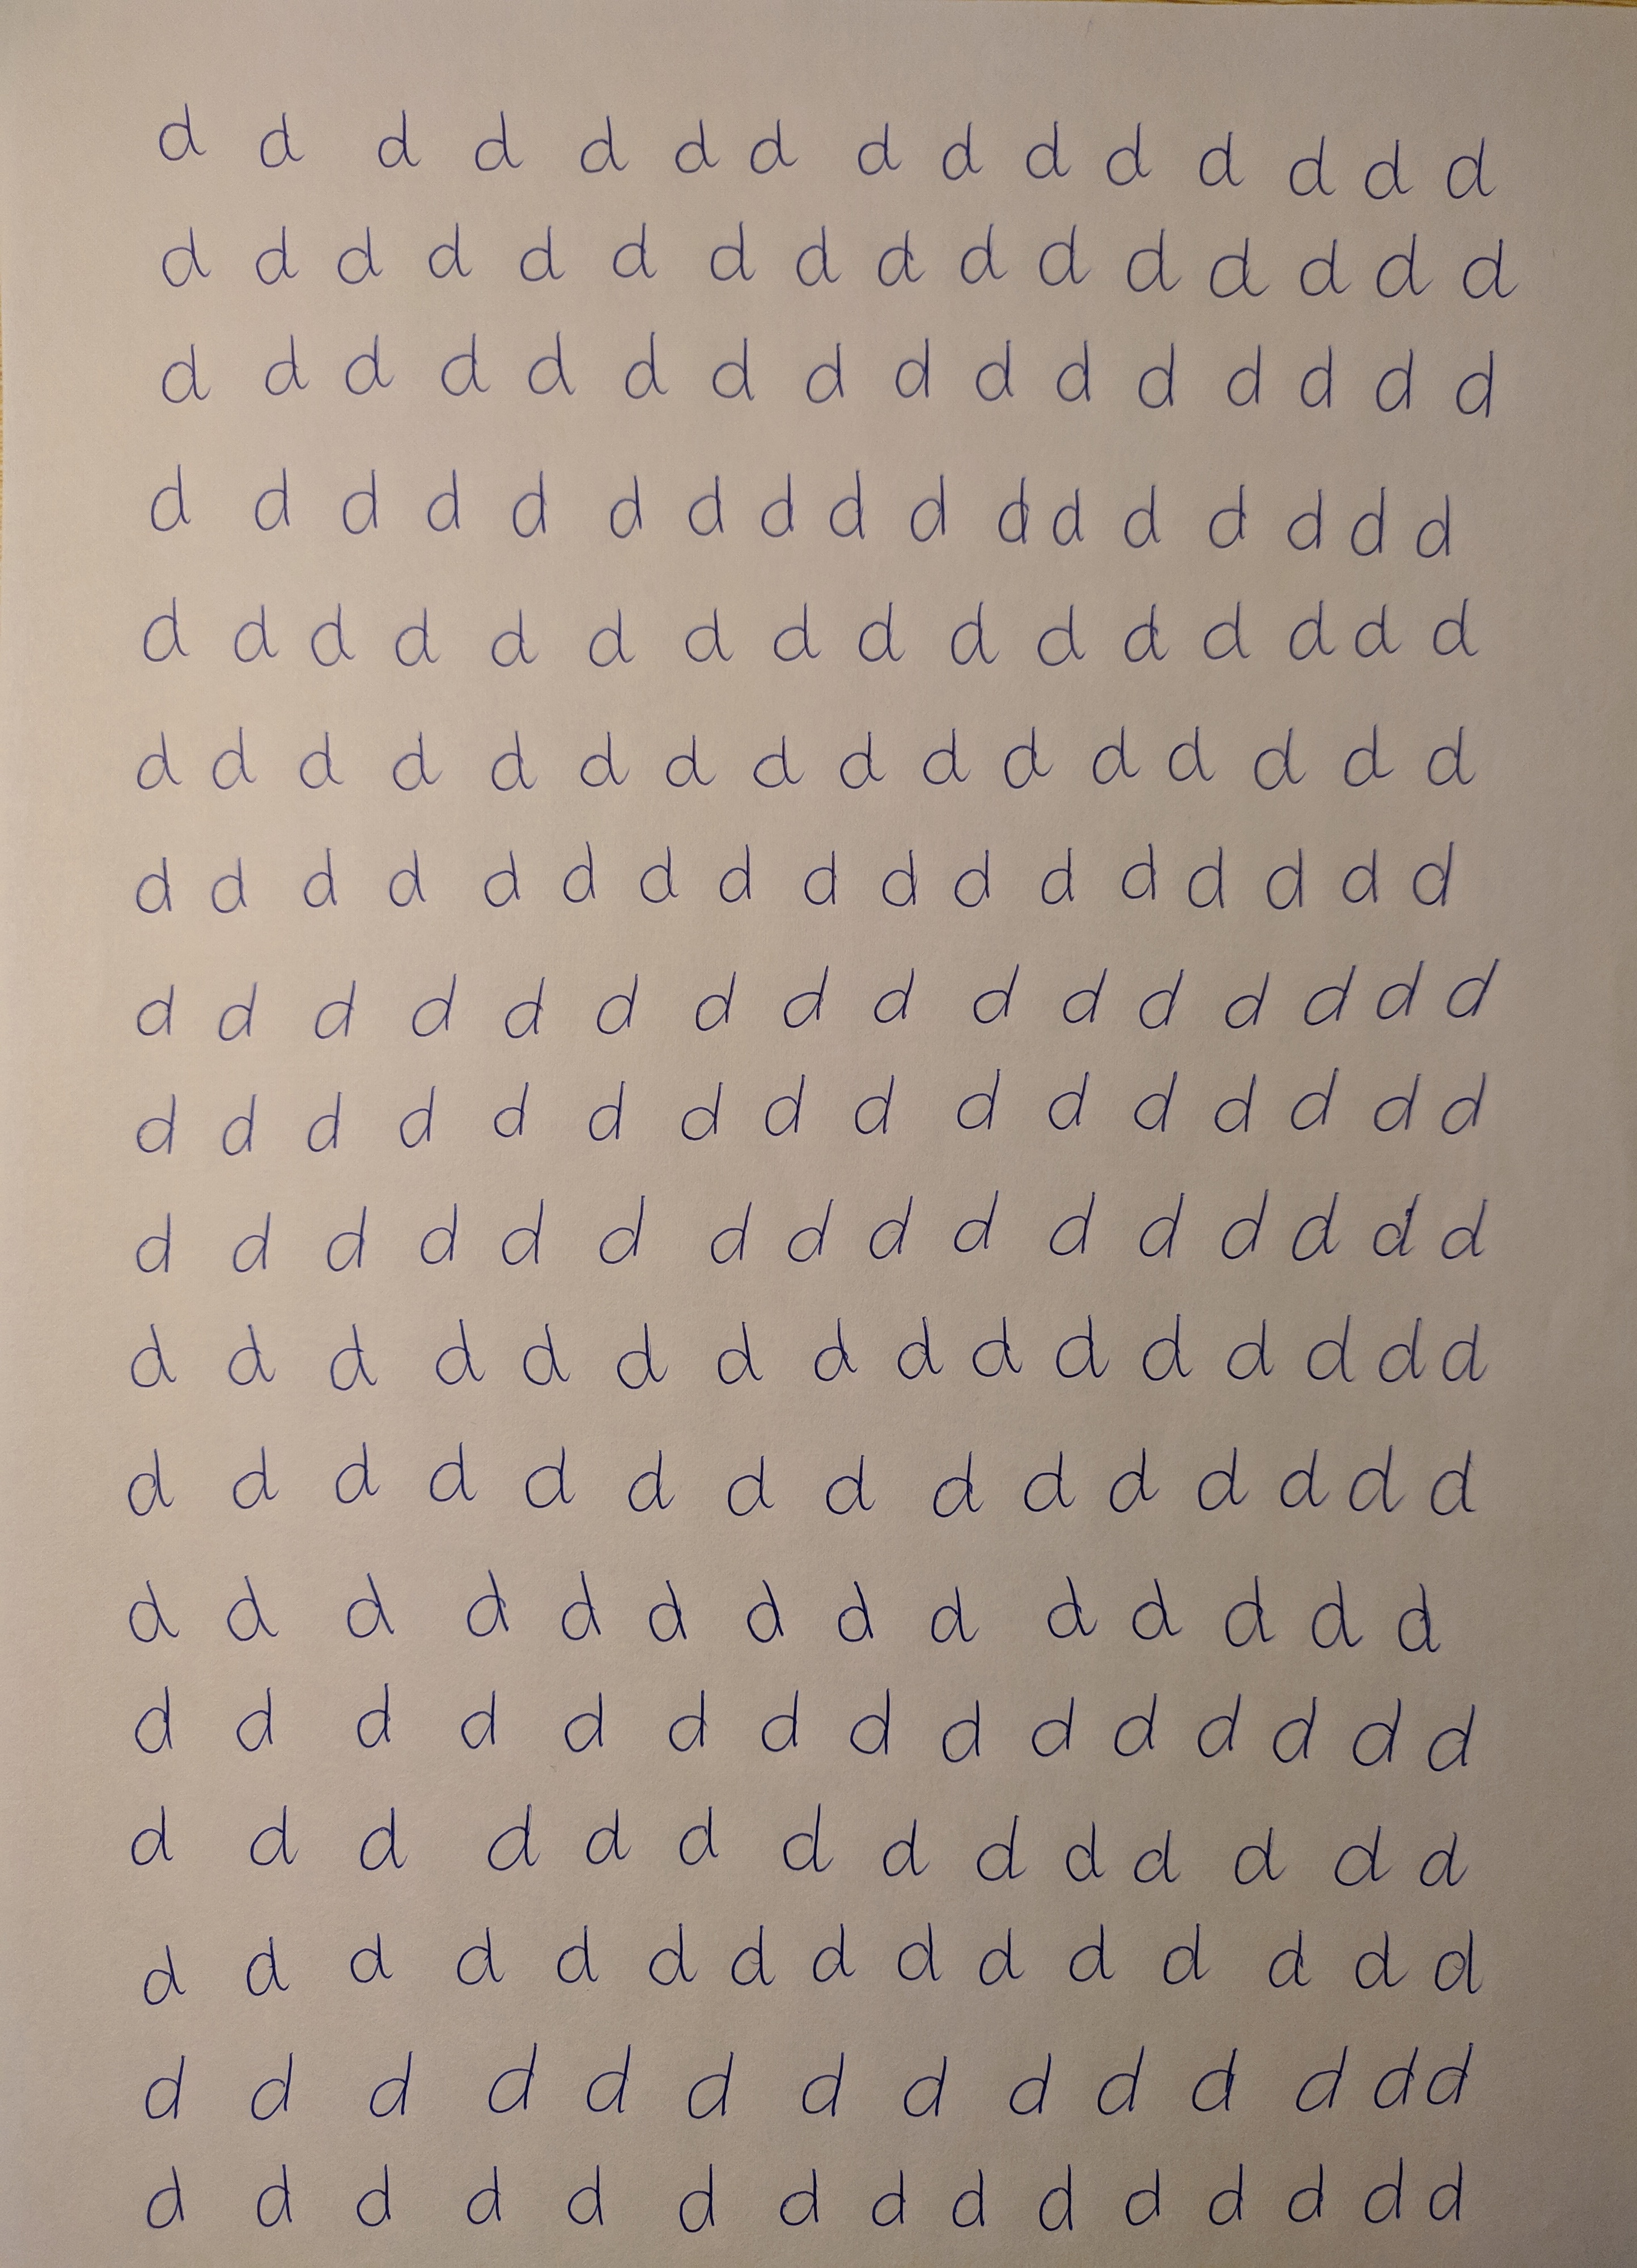 d d d d d d d d d d d d d d d
d d d d d d d d d d d d d d d d
d d d d d d d d d d d d d d d d
d d d d d d d d d d d d d d d d d
d d d d d d d d d d d d d d d d
d d d d d d d d d d d d d d d d
d d d d d d d d d d d d d d d d d
d d d d d d d d d d d d d d d d
d d d d d d d d d d d d d d d d
d d d d d d d d d d d d d d d d
d d d d d d d d d d d d d d d d
d d d d d d d d d d d d d d d
d d d d d d d d d d d d d d
d d d d d d d d d d d d d d d
d d d d d d d d d d d d d d
d d d d d d d d d d d d d d d
d d d d d d d d d d d d d d
d d d d d d d d d d d d d d d